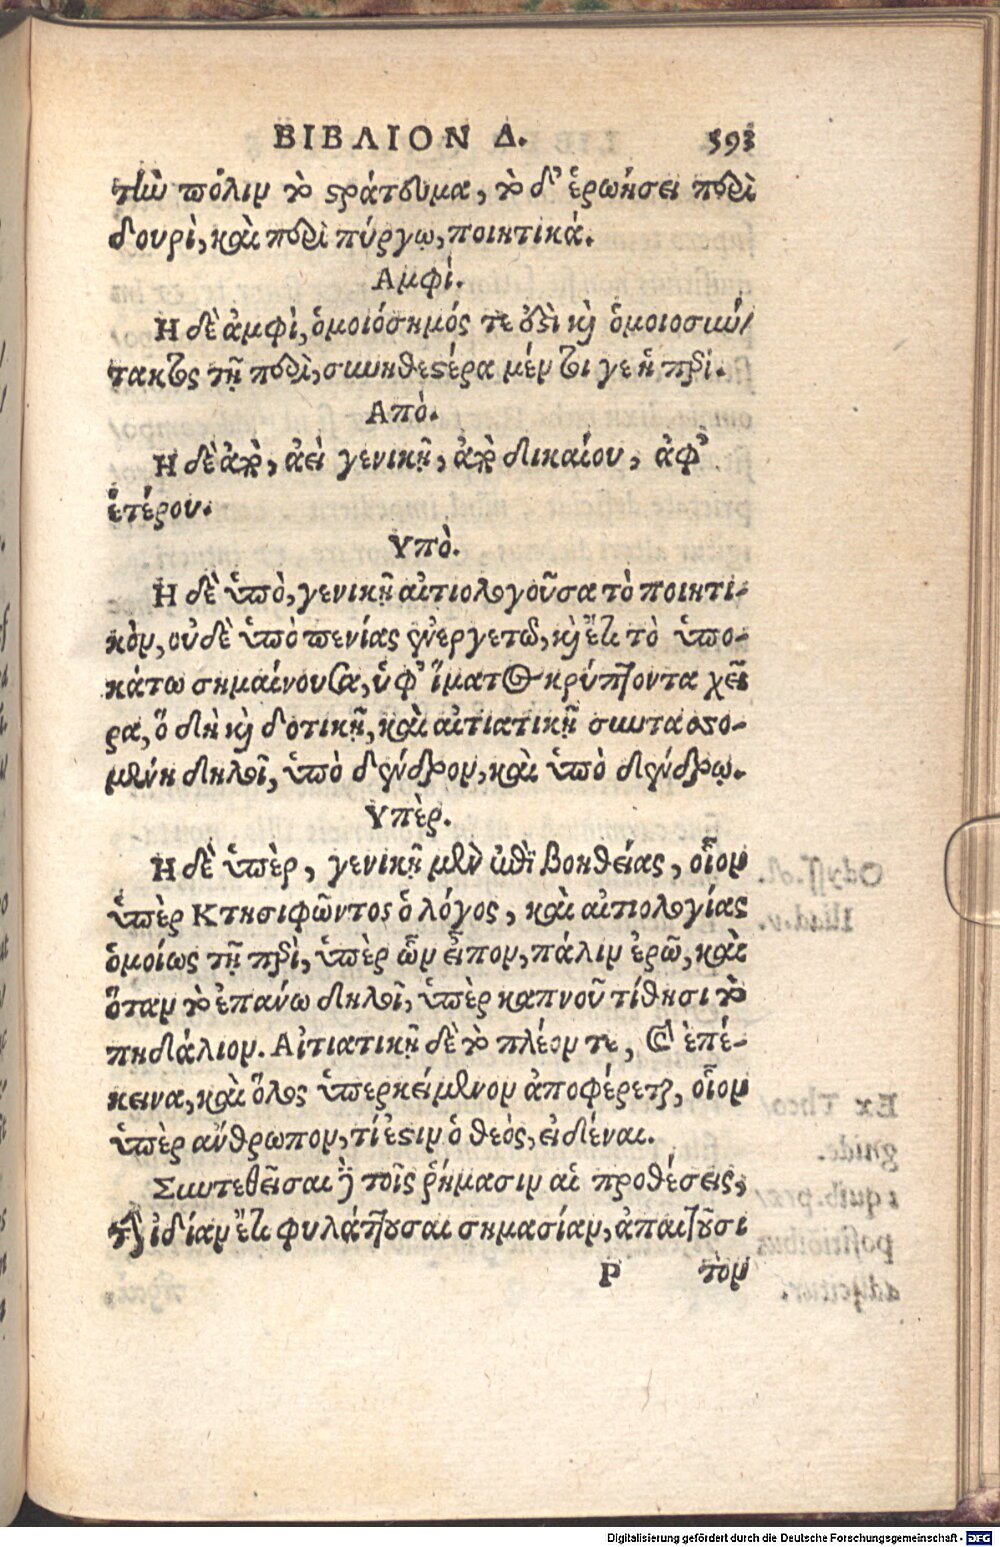 ΒΙΒΛΙΟΝ Δ. 593
τὴν πόλιν τὸ στράτευμα, τὸ δ' ἑρωήσει περὶ
δουρὶ, καὶ περὶ πύργῳ, ποιητικά.
Αμφί.
Η δὲ ἀμφὶ, ὁμοιόσημός τε οὖσι καὶ ὁμοιοσυν/
τακτος τῇ περὶ, συνηθεστέρα μέν τοι γε ἡ περί.
Απὸ.
Η δὲ ἀπὸ, ἀεὶ γενικῇ, ἀπὸ δικαίου, ἀφ'
ἑτέρου.
Υπὸ.
Η δὲ ὑπὸ, γενικῇ αἰτιολογοῦσα τὸ ποιητι-
κὸν, οὐδὲ ὑπὸ πενίας ἐνεργετῶ, καὶ ἔτι τὸ ὑπο-
κάτω σημαίνουσα, ὑφ' ἵματος κρύπτοντα χεῖ
ρα, ὃ δὴ καὶ δοτικῇ, καὶ αἰτιατικῇ συντασσο-
μένη δηλοῖ, ὑπὸ δένδρον, καὶ ὑπὸ δένδρῳ.
Υπὲρ.
Η δὲ ὑπὲρ, γενικῇ μὲν ἐπὶ βοηθείας, οἷον
ὑπὲρ Κτησιφῶντος ὁ λόγος, καὶ αἰτιολογίας
ὁμοίως τῇ περὶ, ὑπὲρ ὧν εἶπον, πάλιν ἐρῶ, καὶ
ὅταν τὸ ἐπάνω δηλοῖ, ὑπὲρ καπνοῦ τίθησι τὸ
πηδάλιον. Αἰτιατικῇ δὲ τὸ πλέον τε, καὶ ἐπέ-
κεινα, καὶ ὅλως ὑπερκείμενον ἀποφέρεται, οἷον
ὑπὲρ ἄνθρωπον, τί ἐστιν ὁ θεὸς, εἰδέναι.
Συντεθεῖσαι δὲ τοῖς ῥήμασιν αἱ προθέσεις,
τὴν ἰδίαν ἔτι φυλάττουσαι σημασίαν, ἀπαιτοῦσι
P τὸν
Digitalisierung gefördert durch die Deutsche Forschungsgemeinschaft - DFG